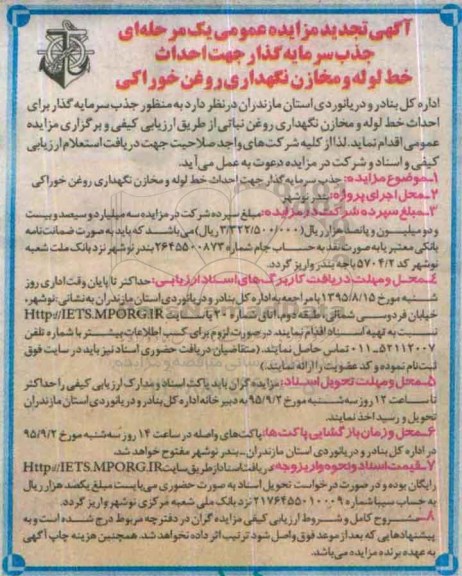 آگهی تجدید مزایده عمومی یک مرحله‌ای
جذب سرمایه گذار جهت احداث
خط لوله و مخازن نگهداری روغن خوراکی
اداره کل بنادر و دریانوردی استان مازندران در نظر دارد به منظور جذب سرمایه گذار برای
احداث خط لوله و مخازن نگهداری روغن نباتی از طریق ارزیابی کیفی و برگزاری مزایده
عمومی اقدام نماید. لذا از کلیه شرکت‌های واجد صلاحیت جهت دریافت استعلام ارزیابی
کیفی و اسناد و شرکت در مزایده دعوت به عمل می‌آید.
۱-موضوع مزایده: جذب سرمایه گذار جهت احداث خط لوله و مخازن نگهداری روغن خوراکی
۲-محل اجرای پروژه: بندر نوشهر
۳-مبلغ سپرده شرکت در مزایده: مبلغ سپرده شرکت در مزایده سه میلیارد و سیصد و بیست
و دو میلیون و پانصد هزار ریال (۳/۳۲۲/۵۰۰/۰۰۰ ریال) می‌باشد که باید به صورت ضمانت نامه
بانکی معتبر یا به صورت نقد به حساب جام شماره ۲۶۴۵۵۰۰۸۷۳ بندر نوشهر نزد بانک ملت شعبه
نوشهر کد ۵۷۰۴/۲ باجه بندر واریز گردد.
۴-محل و مهلت دریافت کاربرگ‌های اسناد ارزیابی: حداکثر تا پایان وقت اداری روز
شنبه مورخ ۱۳۹۵/۸/۱۵ با مراجعه به اداره کل بنادر و دریانوردی استان مازندران به نشانی: نوشهر،
خیابان فردوسی شمالی، طبقه دوم، اتاق شماره ۲۰۰ یا سایت Http://IETS.MPORG.IR
نسبت به تهیه اسناد اقدام نمایند. در صورت لزوم برای کسب اطلاعات بیشتر با شماره تلفن
۵۲۱۱۲۰۰۷-۰۱۱ تماس حاصل نمایند. (متقاضیان دریافت حضوری اسناد نیز باید در سایت فوق
ثبت نام نموده و کد عضویت را ارائه نمایند.)
۵-محل و مهلت تحویل اسناد: مزایده گران باید پاکت اسناد و مدارک ارزیابی کیفی را حداکثر
تا ساعت ۱۲ روز سه شنبه مورخ ۹۵/۹/۲ به دبیرخانه اداره کل بنادر و دریانوردی استان مازندران
تحویل و رسید اخذ نمایند.
۶-محل و زمان بازگشایی پاکت‌ها: پاکت‌های واصله در ساعت ۱۴ روز سه شنبه مورخ ۹۵/۹/۲
در اداره کل بنادر و دریانوردی استان مازندران-بندر نوشهر مفتوح خواهد شد.
۷-قیمت اسناد و نحوه واریز وجه: دریافت اسناد از طریق سایت Http://IETS.MPORG.IR
رایگان بوده و در صورت درخواست تحویل اسناد به صورت حضوری می‌بایست مبلغ یکصد هزار ریال
به حساب سیبا شماره ۲۱۷۶۴۵۵۰۱۰۰۰۹ نزد بانک ملی شعبه مرکزی نوشهر واریز گردد.
۸-شروح کامل و شروط ارزیابی کیفی مزایده گران در دفترچه مربوط درج شده است و به
پیشنهادهایی که بعد از موعد فوق واصل شود ترتیب اثر داده نخواهد شد. همچنین هزینه چاپ آگهی
به عهده برنده مزایده می‌باشد.